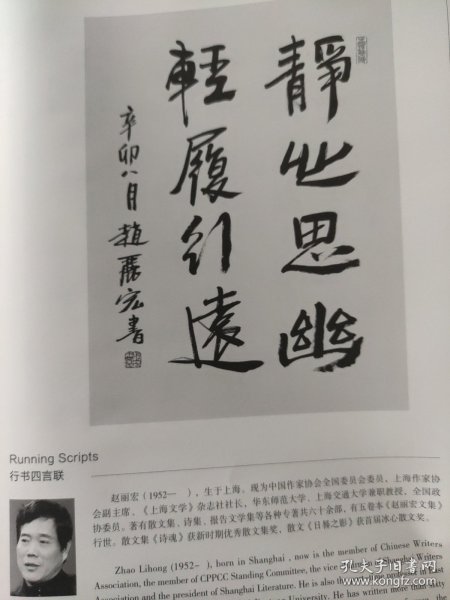 靜心思幽
輕履引遠
辛卯八月趙麗宏書
Running Scripts
行书四言联
赵丽宏（1952— ），生于上海。现为中国作家协会全国委员会委员、上海作家协
会副主席、《上海文学》杂志社社长，华东师范大学、上海交通大学兼职教授。全国政
协委员。著有散文集、诗集、报告文学集等各种专著共六十余部，有五卷本《赵丽宏文集》
行世。散文集《诗魂》获新时期优秀散文集奖，散文《日晷之影》获首届冰心散文奖。
Zhao Lihong (1952– ), born in Shanghai, now is the member of Chinese Writers
Association, the member of CPPCC Standing Committee, the vice Shanghai Writers
Association and the president of Shanghai Literature. He is also in East
University. He has written more than
孔夫子旧书网